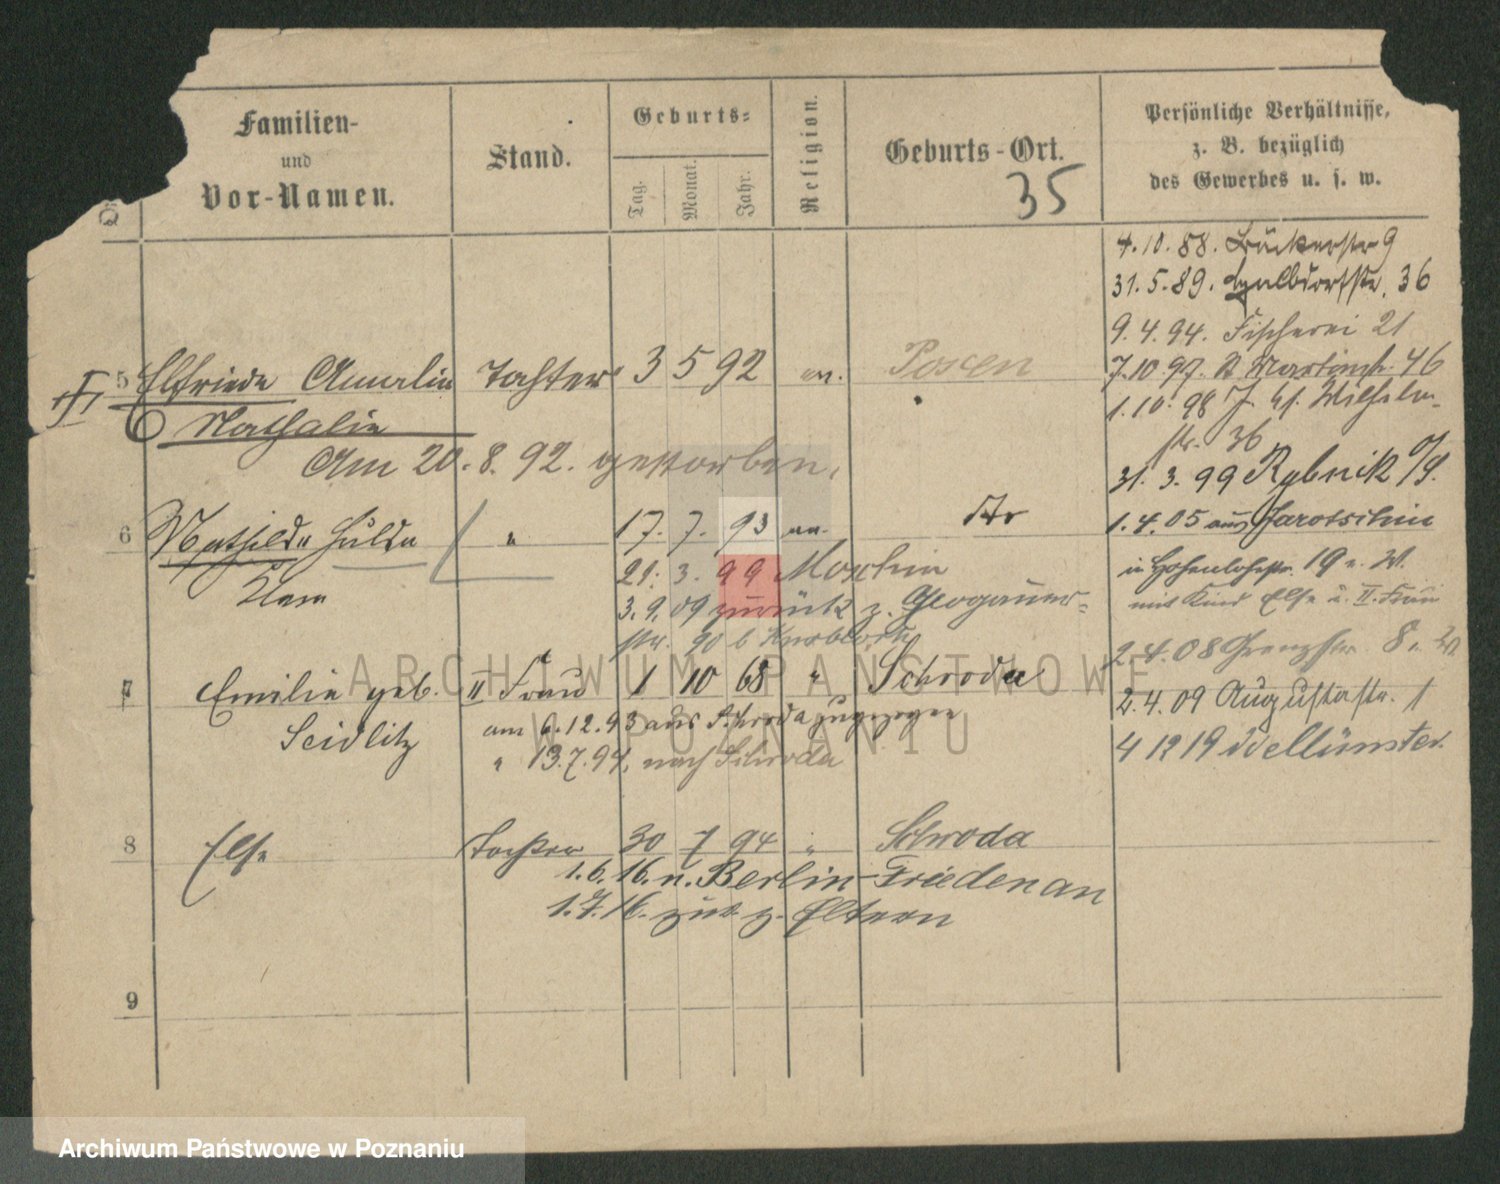 Familien-
und
Vor-Namen.
Stand.
Geburts-
Tag.
Monat.
Jahr.
Religion.
Geburts-Ort.
35
Persönliche Verhältnisse,
z. B. bezüglich
des Gewerbes u. s. w.
4.10.88. Bäckerstr 9
31.5.89. Halbdorfstr. 36
9.4.94. Fischerei 21
7.10.97. St Martinstr. 46
1.10.98 Wilhelm-
str. 36
31.3.99 Rybnik O/S.
1.4.05 aus Jarotschin
in Hohenlohestr. 19 b. W.
mit Kind Else u. II. Frau
2.4.08 Grenzstr. 8
2.4.09 Augustastr. 1
4 12 19 Wellünster.
5 Elfriede Amalie Tochter 3 5 92 ev. Posen
6 Nathalie
Am 20.8.92. gestorben.
6 Mathilde Hulda " 17. 7. 93 ev. do
Klara
21. 3. 99
3.9.09 zurück z. Glogauer-
str. 90 b
7 Emilie geb. II Frau 1 10 68 " Schroda
Seidlitz
am 6.12.93 aus Schroda zugezogen
" 13.7.94, nach Schroda
8 Else Tochter 30 7 94 " Schroda
1.6.16. n. Berlin-Friedenau
1.7.16. zur. z. Eltern
9
ARCHIWUM PAŃSTWOWE
W POZNANIU
Archiwum Państwowe w Poznaniu